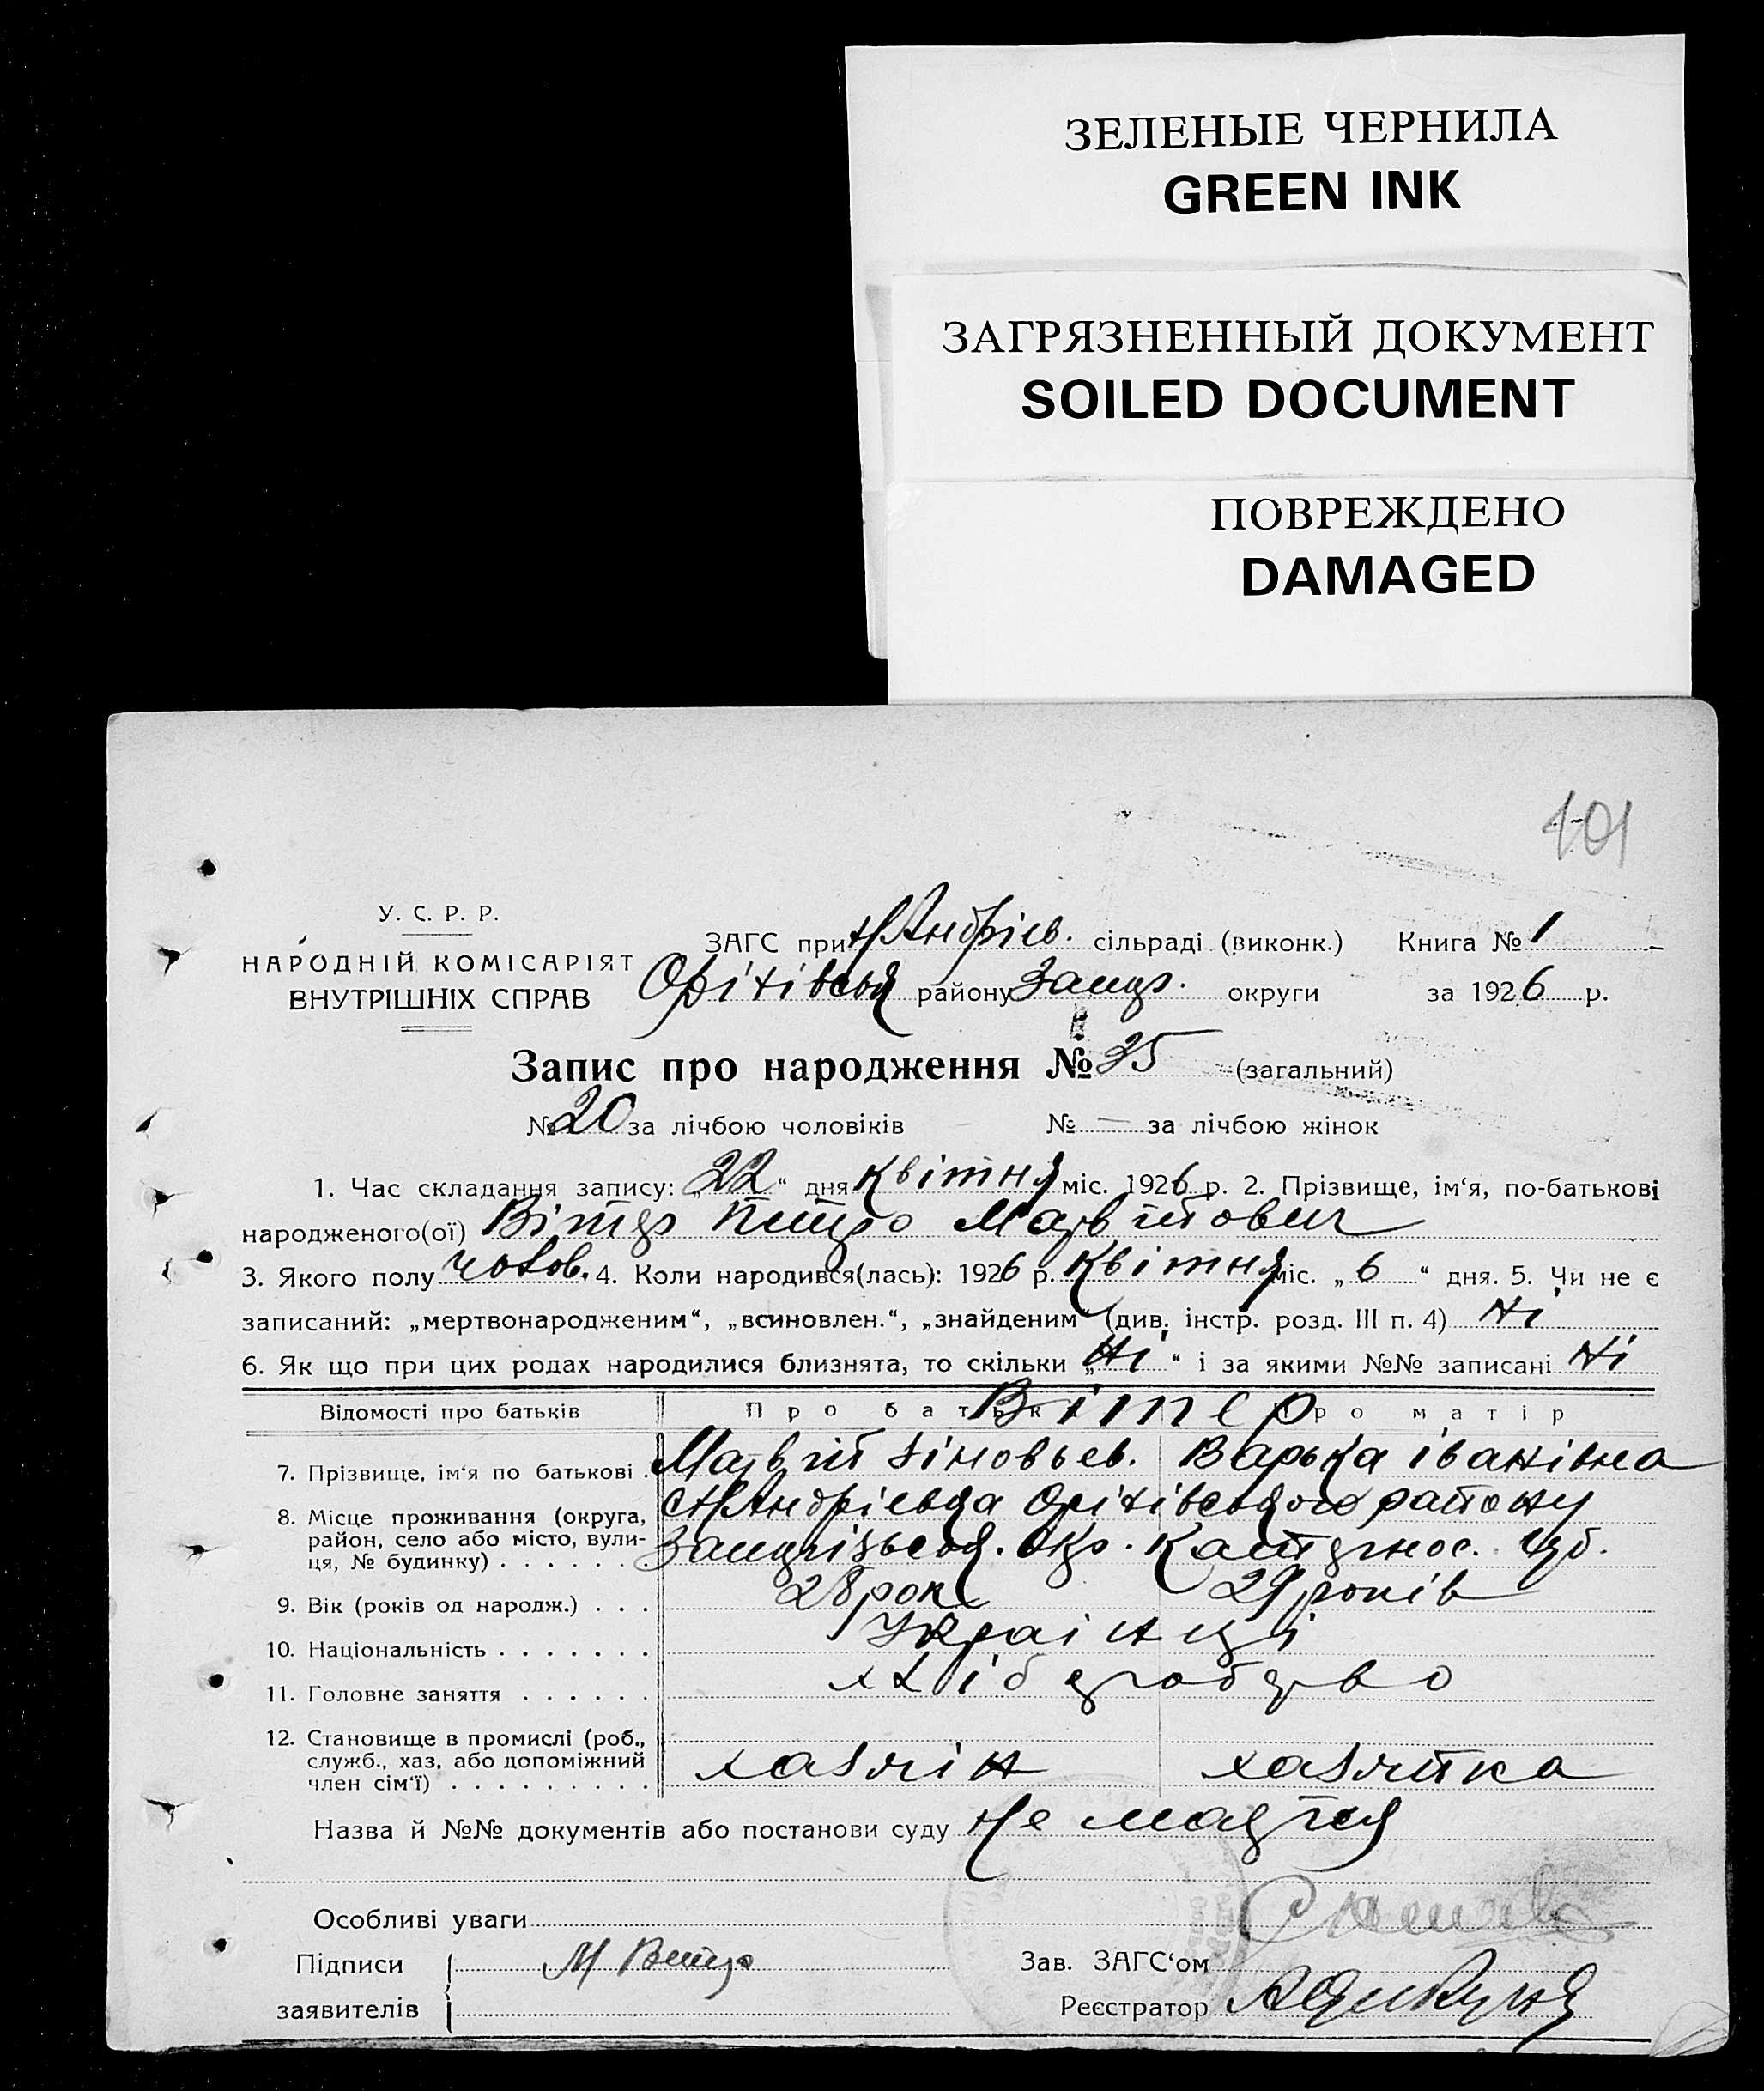 ЗЕЛЕНЫЕ ЧЕРНИЛА
GREEN INK
ЗАГРЯЗНЕННЫЙ ДОКУМЕНТ
SOILED DOCUMENT
ПОВРЕЖДЕНО
DAMAGED
101
У. С. Р. Р.
НАРОДНІЙ КОМІСАРІЯТ
ВНУТРІШНІХ СПРАВ
ЗАГС при Н Андрієв. сільраді (виконк.) Книга № 1
Оріхівськ району Запор. округи за 1926 р.
Запис про народження № 35 (загальний)
№ 20 за лічбою чоловіків № — за лічбою жінок
1. Час складання запису: „22“ дня квітня міс. 1926 р. 2. Прізвище, ім‘я, по-батькові
народженого(ої) Вітер Петро Матвійович
3. Якого полу чолов. 4. Коли народився(лась): 1926 р. квітня міс. „6“ дня. 5. Чи не є
записаний: „мертвонародженим“, „всиновлен.“, „знайденим“ (див. інстр. розд. III п. 4) Ні
6. Як що при цих родах народилися близнята, то скільки „Ні“ і за якими №№ записані Ні
Відомості про батьків Про батька Про матір
Вітер
7. Прізвище, ім‘я по батькові . Матвій Зіновьев. Варька Іванівна
8. Місце проживання (округа, район, село або місто, вулиця, № будинку) . . . . . . с Н Андрієвка Оріхівського району
Запорізськ. Окр. Катерінос. Губ.
9. Вік (років од народж.) . . . 28 рок 29 років
10. Національність . . . . . . . Українці
11. Головне заняття . . . . . . хліборобство
12. Становище в промислі (роб., служб., хаз. або допоміжний член сім‘ї) . . . . . . . . . хазяін хазяйка
Назва й №№ документів або постанови суду Не мається
Особливі уваги
Підписи заявителів М Ветер
Зав. ЗАГС‘ом
Реєстратор